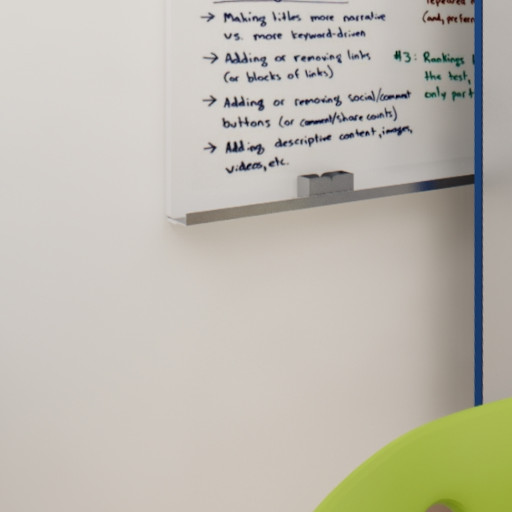 → Making titles more narrative
vs. more keyword-driven
→ Adding or removing links
(or blocks of links)
→ Adding or removing social/comment
buttons (or comment/share counts)
→ Adding descriptive content, images,
videos, etc.
repeated
(and, prefer
#3: Rankings
the test,
only part